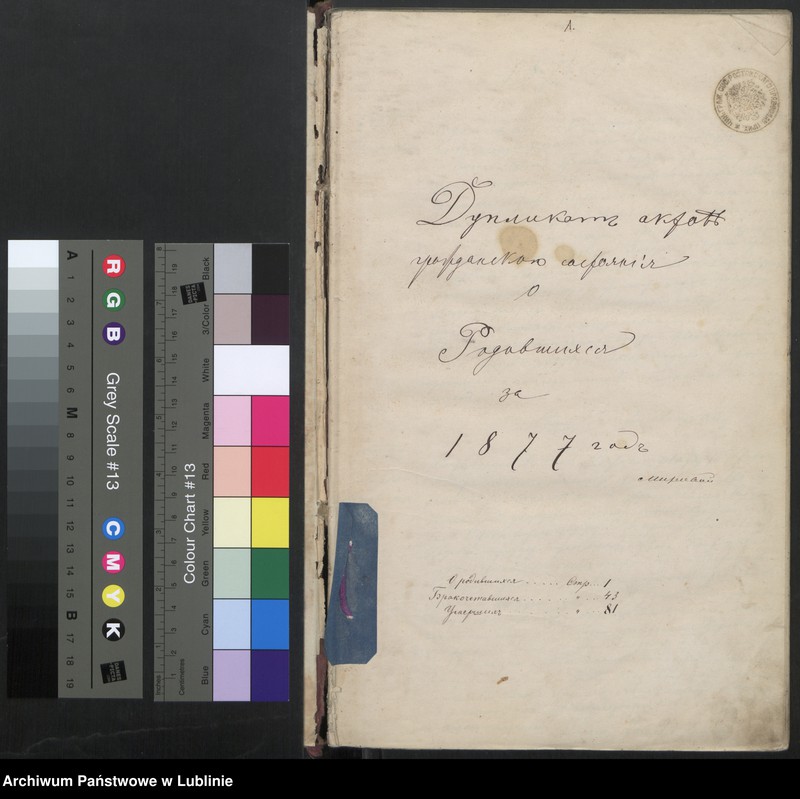 Дупликатъ актовъ
гражданскаго состоянія
о
Родившихся
за
1877 годъ
О родившихся ..... Стр. 1
Бракосочетавшихся ..... " .. 43
Умершихъ ..... " .. 81
A 1 2 3 4 5 6 M 8 9 10 11 12 13 14 15 B 17 18 19
R G B
Grey Scale #13
C M Y K
Colour Chart #13
Inches
Centimetres
Black
3/Color
White
Magenta
Red
Yellow
Green
Cyan
Blue
Archiwum Państwowe w Lublinie